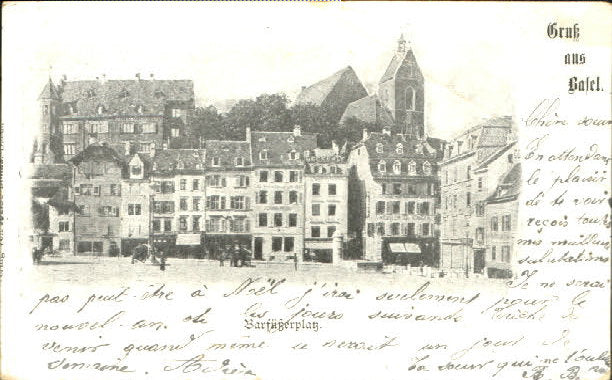 Gruß
aus
Basel.
Chère sœur
En attendant
le plaisir
de te voir
reçois tous
mes meilleurs
salutations
Je ne serai
pas peut-être à Noël j'irai seulement pour le
nouvel-an ou les jours suivants
Barfüßerplatz.
venir quand même ce serait un jour de
Adèle
ta sœur qui ne t'oublie